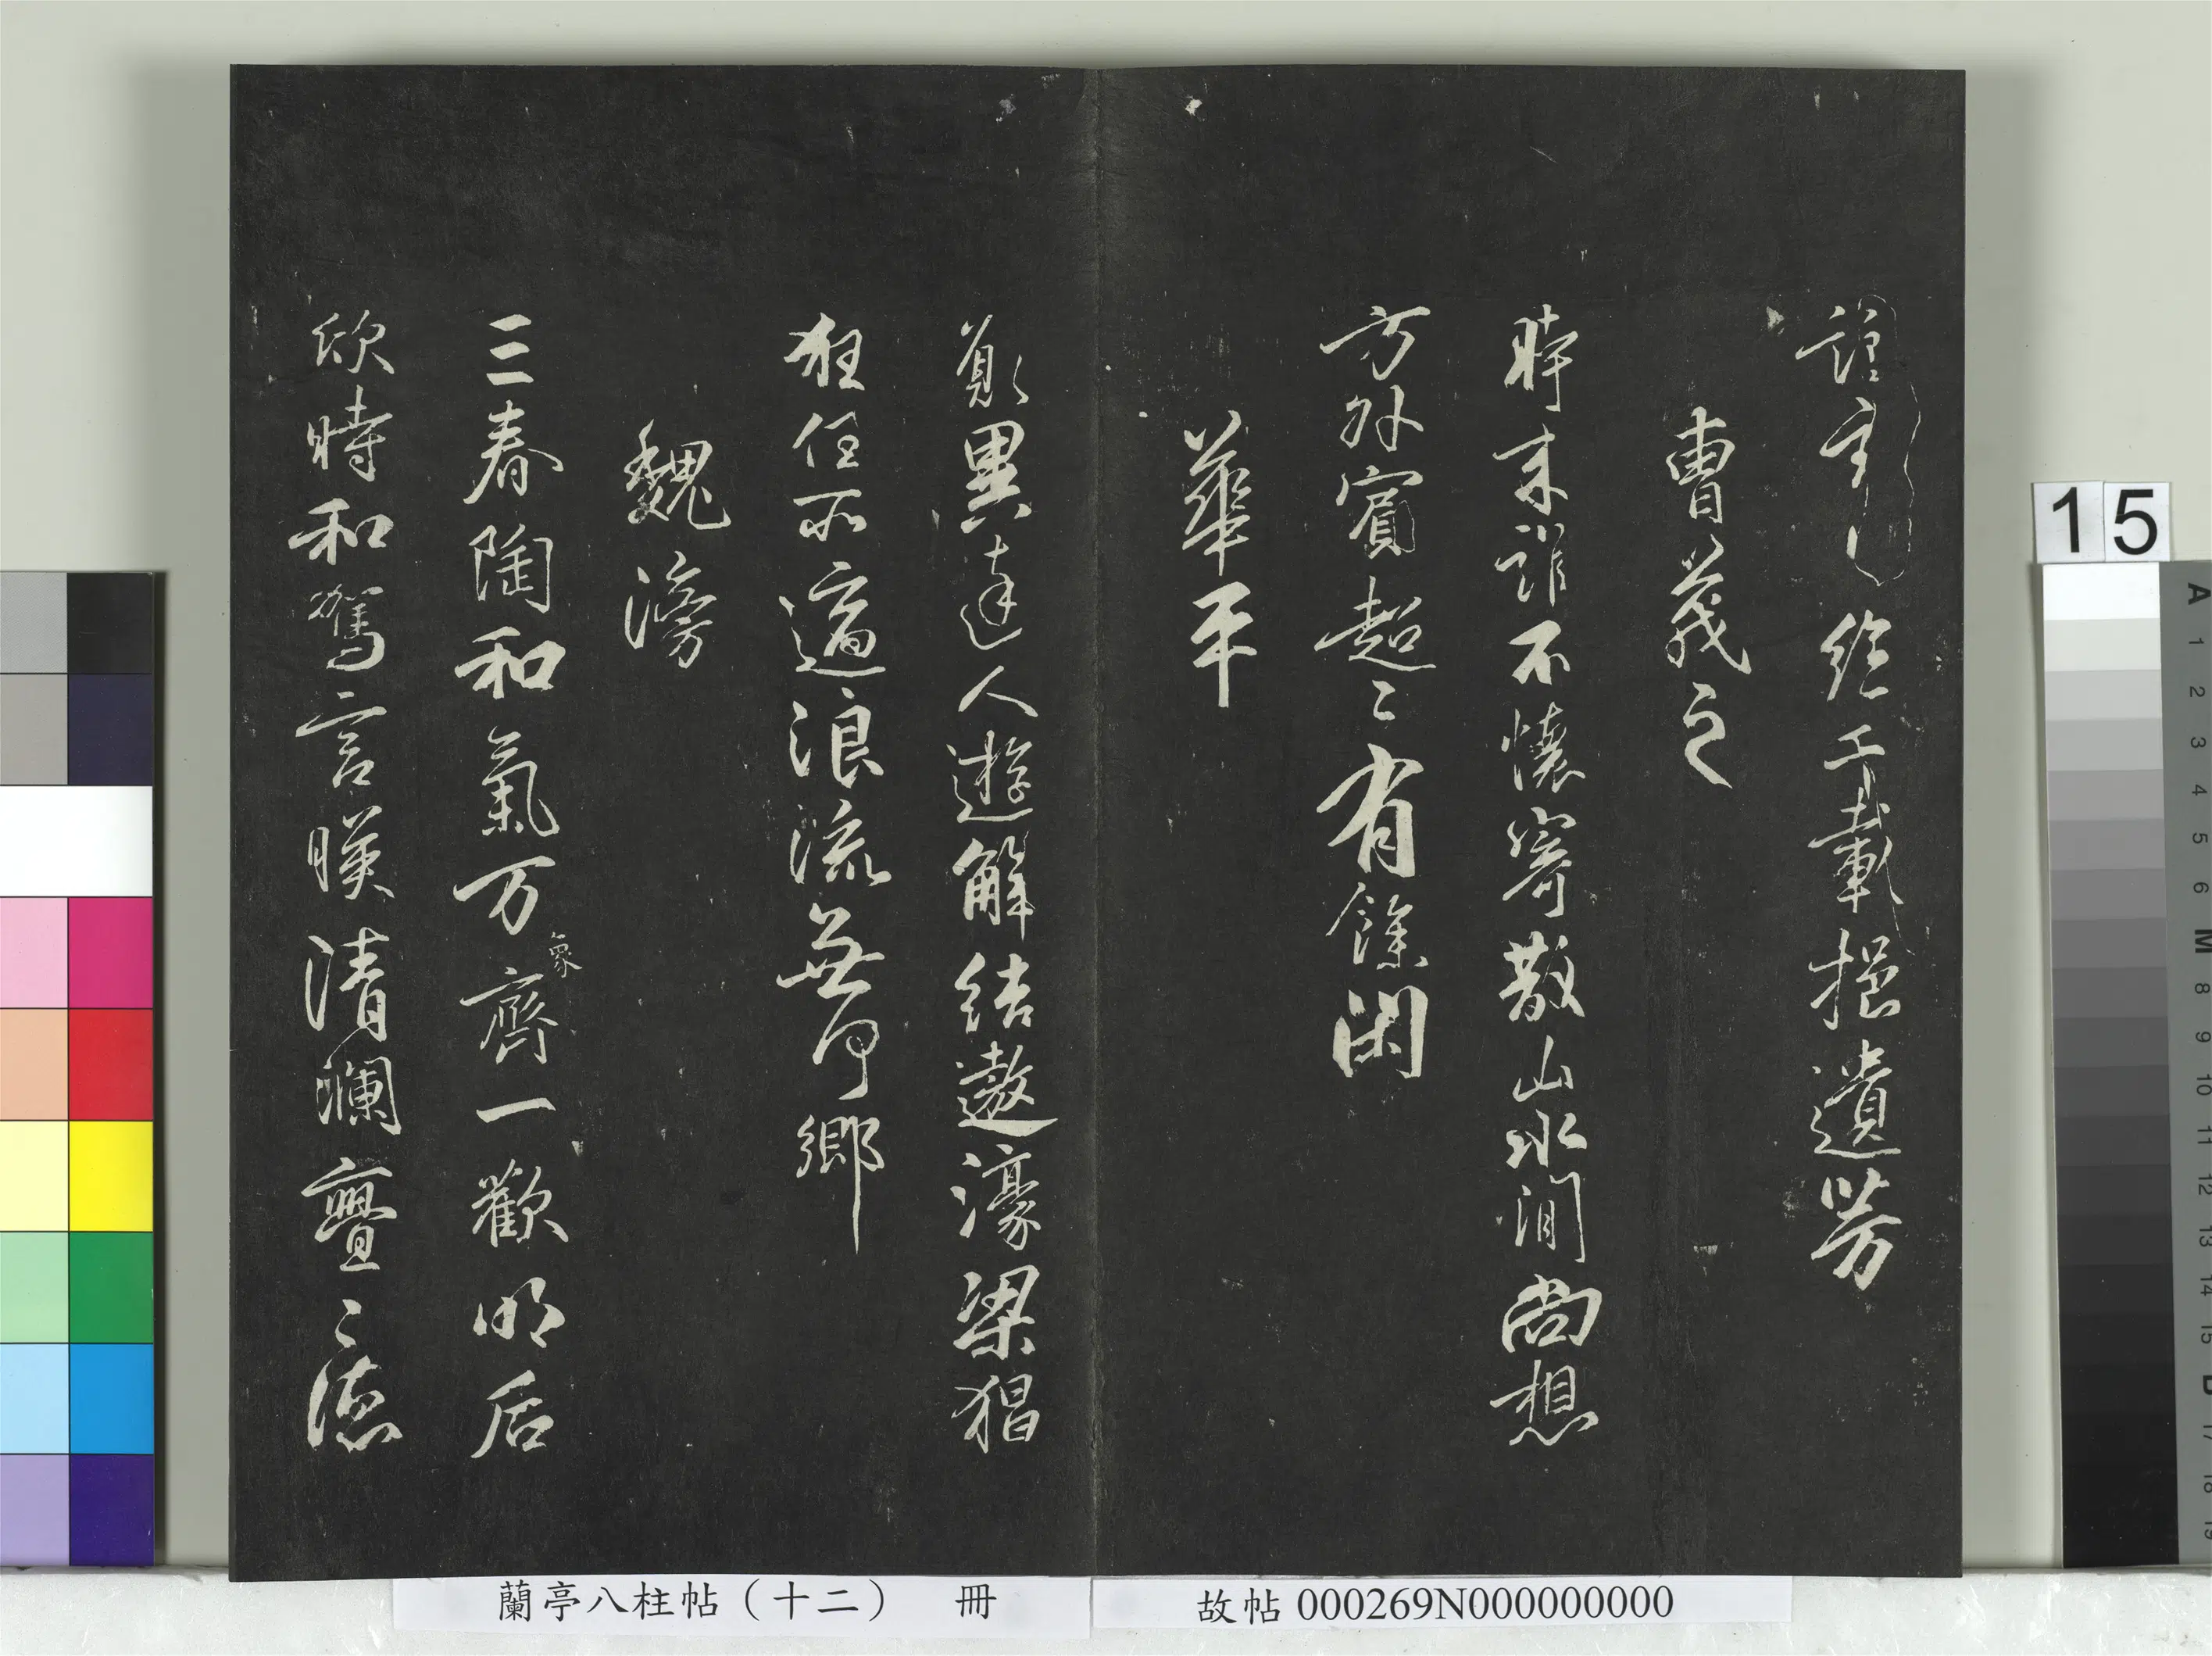 誰絕千載挹遺芳
曹茂之
時来誰不懷寄散山水間尚想
方外賓超〻有餘閑
華平
願與達人遊解結遨濠梁猖
狂任所適浪流無何鄉
魏滂
三春陶和氣万象齊一歡明后
欣時和駕言暎清瀾亹〻德
蘭亭八柱帖（十二） 冊
故帖 000269N000000000
15
A 1 2 3 4 5 6 M 8 9 10 11 12 13 14 15 B 17 18 19